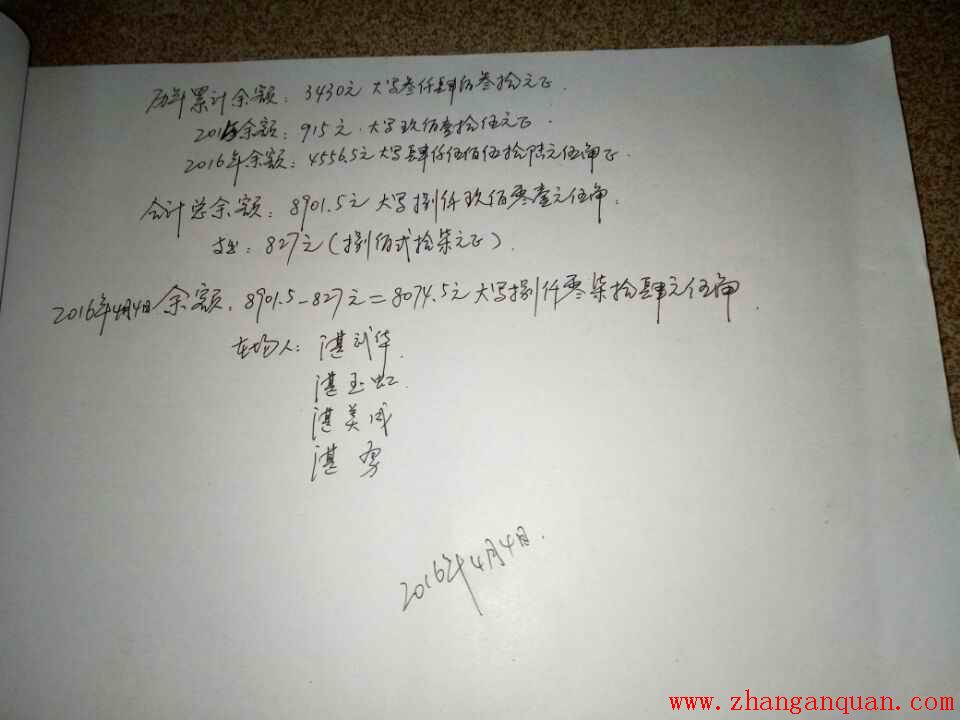 历年累计余额：3430元 大写叁仟肆佰叁拾元正.
2015年余额：915元.大写玖佰壹拾伍元正.
2016年余额：4556.5元大写肆仟伍佰伍拾陆元伍角正.
合计总余额：8901.5元大写捌仟玖佰零壹元伍角.
支出：827元(捌佰弍拾柒元正).
2016年4月4日余额.8901.5-827元=8074.5元大写捌仟零柒拾肆元伍角.
在场人：湛武华.
湛玉虹.
湛美成
湛勇
2016年4月4日.
www.zhanganquan.com